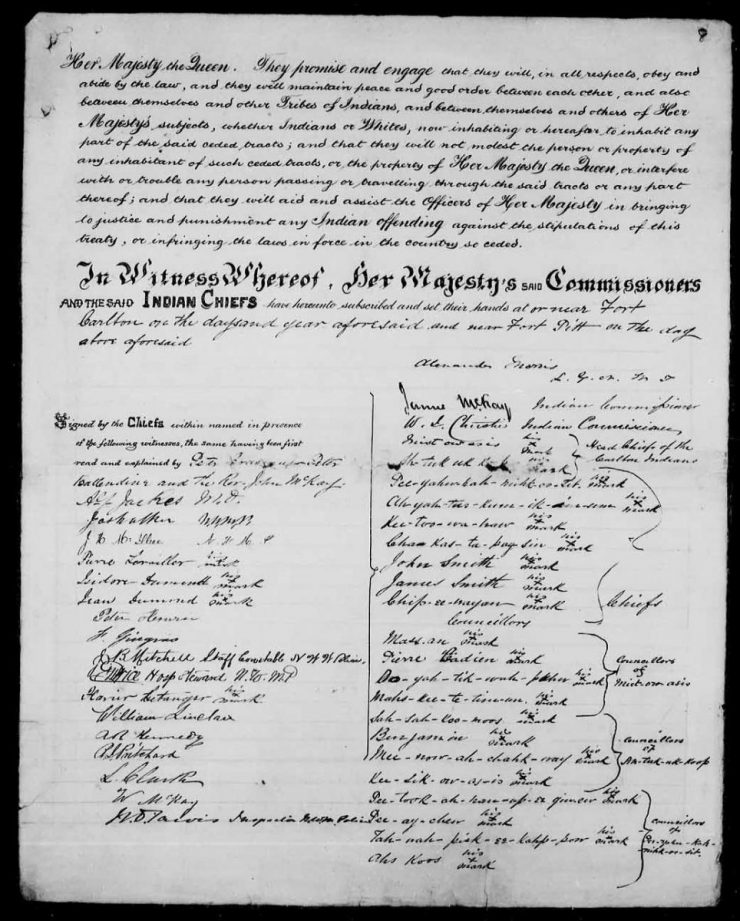 8
Her Majesty the Queen. They promise and engage that they will, in all respects, obey and
abide by the law, and they will maintain peace and good order between each other, and also
between themselves and other Tribes of Indians, and between themselves and others of Her
Majesty's subjects, whether Indians or Whites, now inhabiting or hereafter to inhabit any
part of the said ceded tracts; and that they will not molest the person or property of
any inhabitant of such ceded tracts, or the property of Her Majesty the Queen, or interfere
with or trouble any person passing or travelling through the said tracts or any part
thereof; and that they will aid and assist the Officers of Her Majesty in bringing
to justice and punishment any Indian offending against the stipulations of this
treaty, or infringing the laws in force in the country so ceded.
In Witness Whereof, Her Majesty's said Commissioners
and the said Indian Chiefs have hereunto subscribed and set their hands at or near Fort
Carlton on the day and year aforesaid and near Fort Pitt on the day
above aforesaid
Alexander Morris
L. G. N. W. T
James McKay Indian Commissioner
W. J. Christie Indian Commissioner
Mist-ow-asis his x mark
Head Chiefs of the
Carlton Indians
his x mark
his x mark
his x mark
Kee-too-wa-haw his x mark
Cha-kas-ta-pay-sin his x mark
John Smith his x mark
James Smith his x mark
Chip-ee-wayan his x mark
Chiefs
Councillors
Massan his x mark
Pierre Cadien his x mark
his x mark
Mahs-kee-te-tim-un his x mark
Councillors
of
Mist-ow-asis
Sah-sah-koo-moos his x mark
Benjamin his x mark
Mee-now-ah-chahk-way his x mark
Kee-sik-ow-as-is his x mark
Councillors
of
Ah-tuk-uk-koop
his x mark
Pee-ay-chew his x mark
Tah-wah-pisk-ee-kahp-pow his x mark
Ahs Koos his x mark
Councillors
of
Pee-yahn-kah-
nihk-oo-sit.
Signed by the Chiefs within named in presence
of the following witnesses, the same having been first
read and explained by Peter Erasmus Peter
Ballendine and the Rev. John McKay
A. G. Jackes M.D.
Jos Walker NWMP
J. H. McIllree N. W. M. P
Pierre Levailler his x mark
Isidore Dumond his x mark
Jean Dumond his x mark
Peter Hourie
F. Gingras
J. B. Mitchell Staff Constable N W M Police.
Hosp Steward N. W. M P
Xavier Letanger his x mark
William Sinclair
A. R. Kennedy
R. J. Pritchard
L. Clarke
W. McKay
W. D. Jarvis Inspector N W M Police